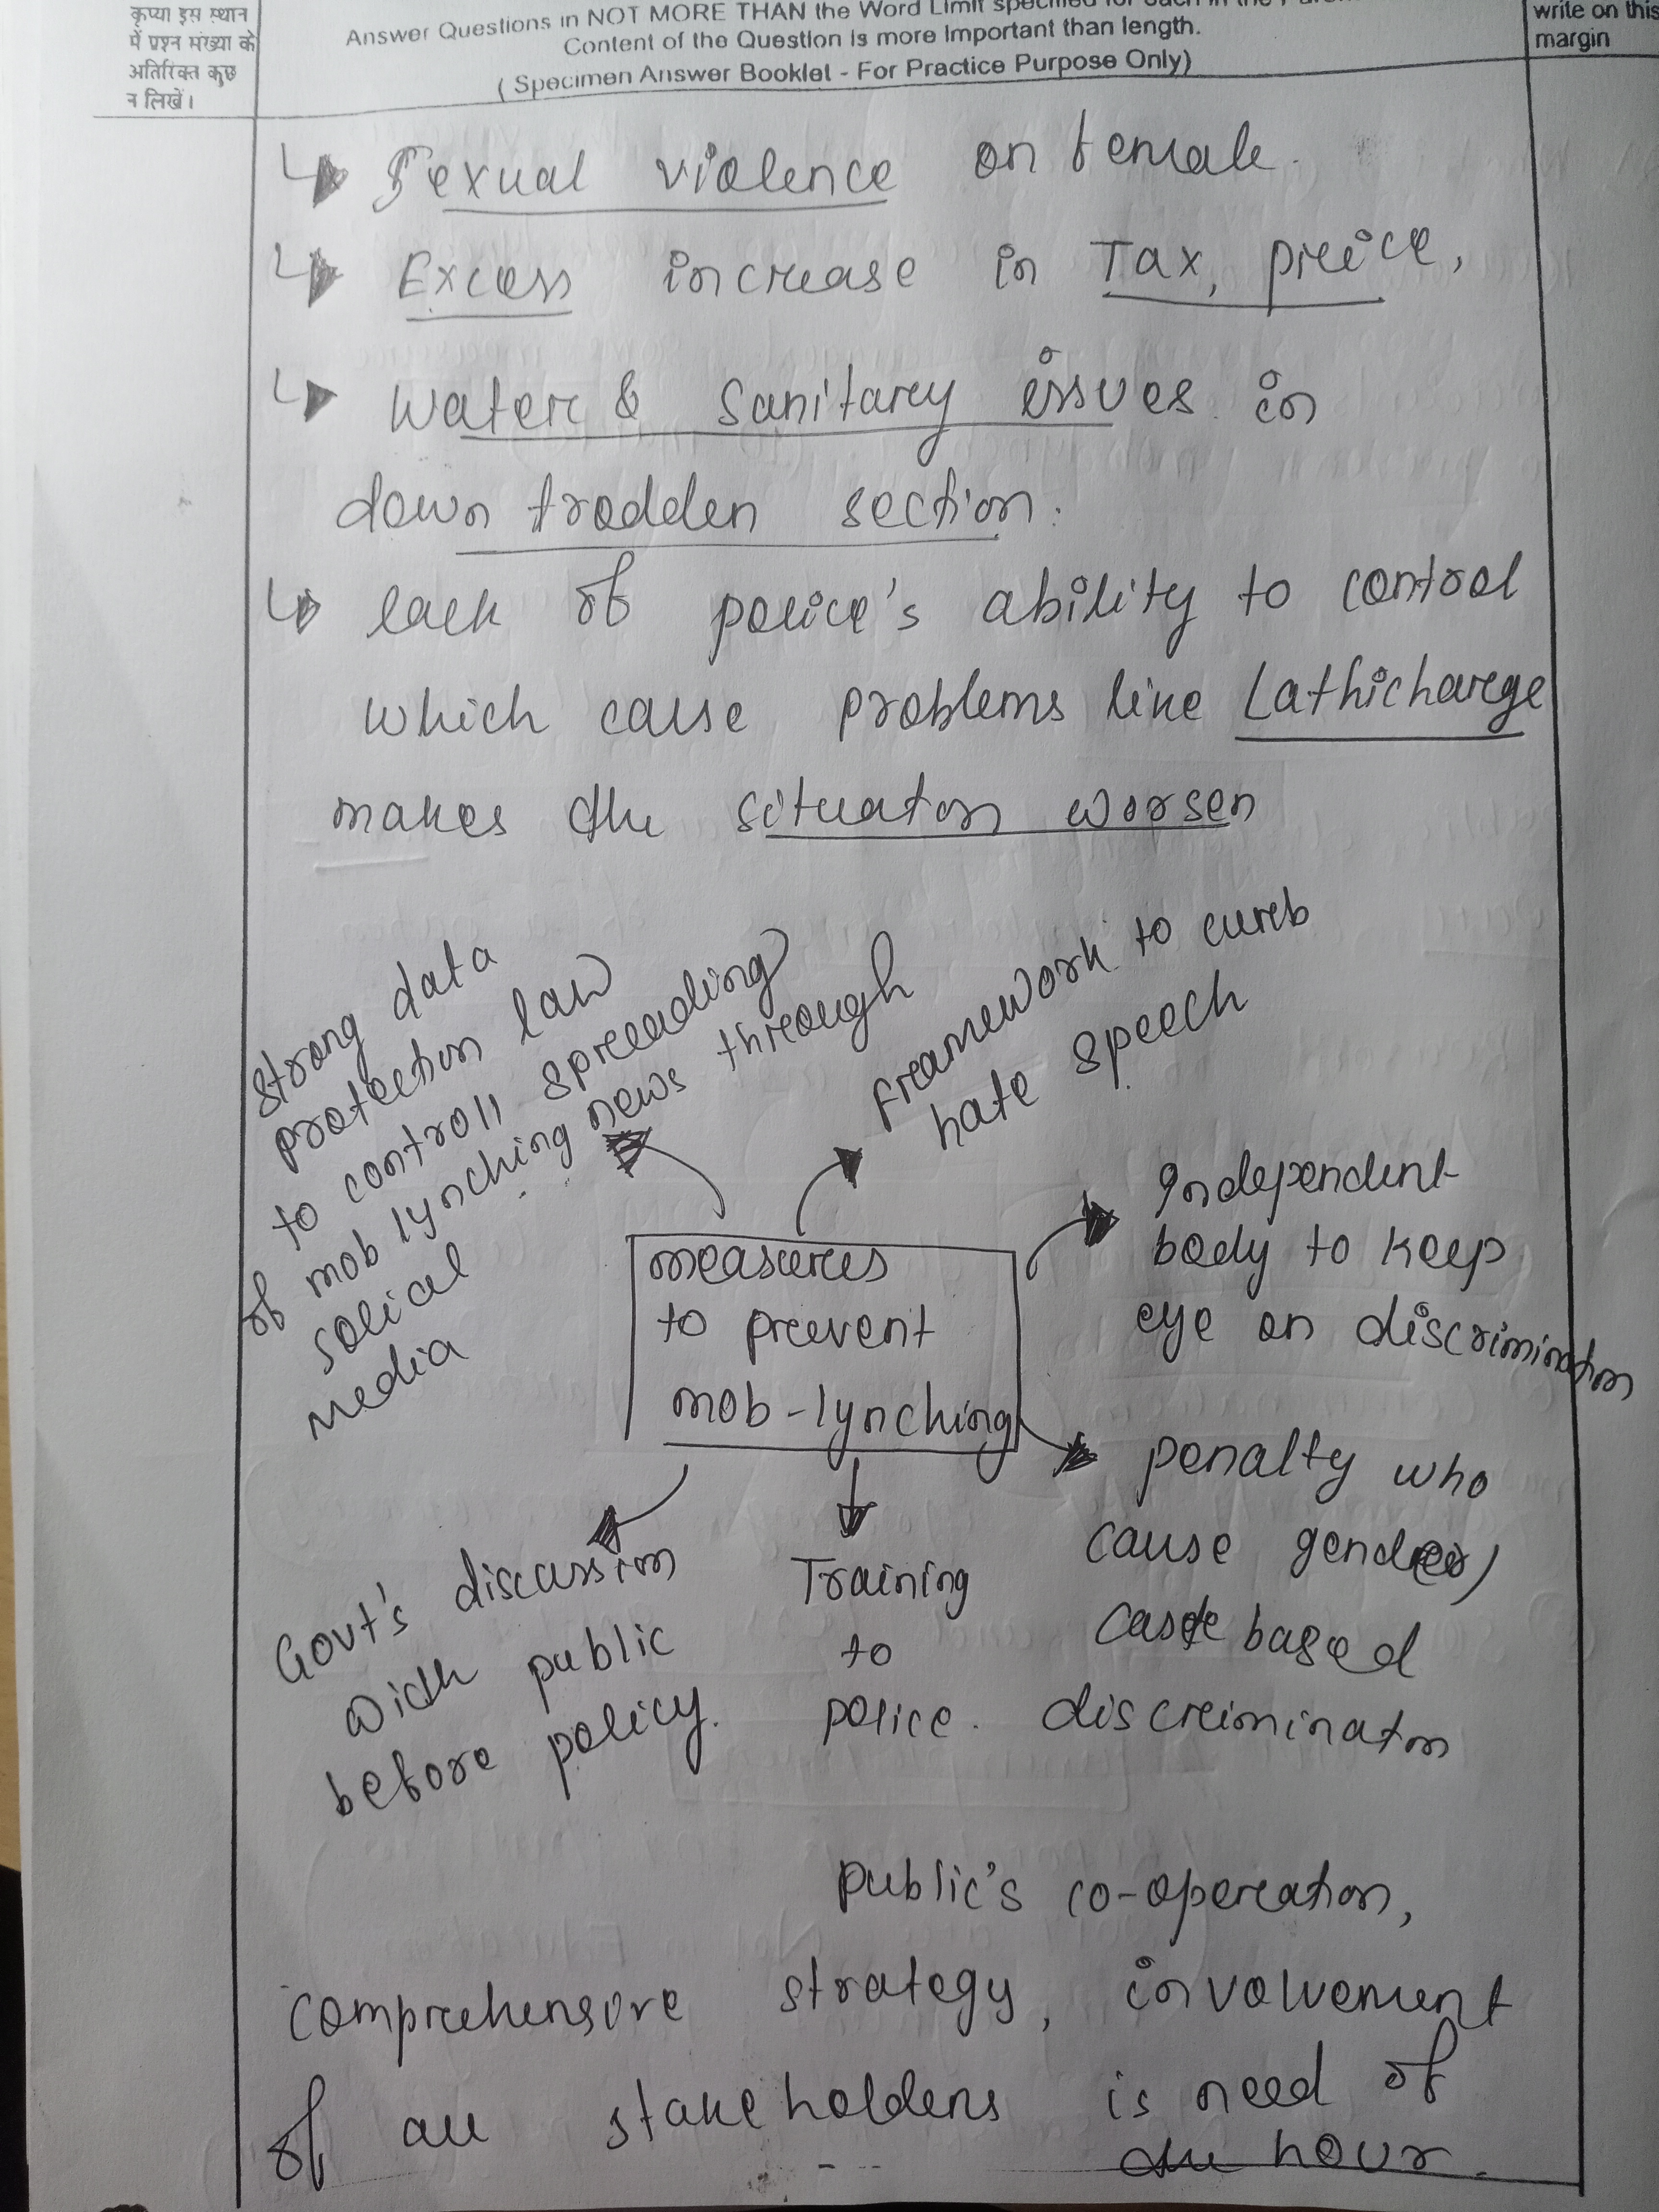 कृप्या इस स्थान
में प्रश्न संख्या के
अतिरिक्त कुछ
न लिखें।
Answer Questions in NOT MORE THAN the Word Limit specified for each in the
Content of the Question is more Important than length.
( Specimen Answer Booklet - For Practice Purpose Only)
write on this
margin
Sexual violence on female.
Excess increase in Tax, price,
Water & Sanitary issues in
down trodden section.
lack of police's ability to control
which cause problems like Lathicharge
makes the situation worsen
strong data
protection law
to controll spreading
of mob lynching news through
solical
media
Framework to curb
hate speech
Independent
body to keep
eye on discrimination
measures
to prevent
mob-lynching
penalty who
cause gender/
caste based
discrimination
Training
to
police.
Govt's discussion
with public
before policy.
public's co-operation,
comprehensive strategy, involvement
of all stakeholders is need of
the hour.